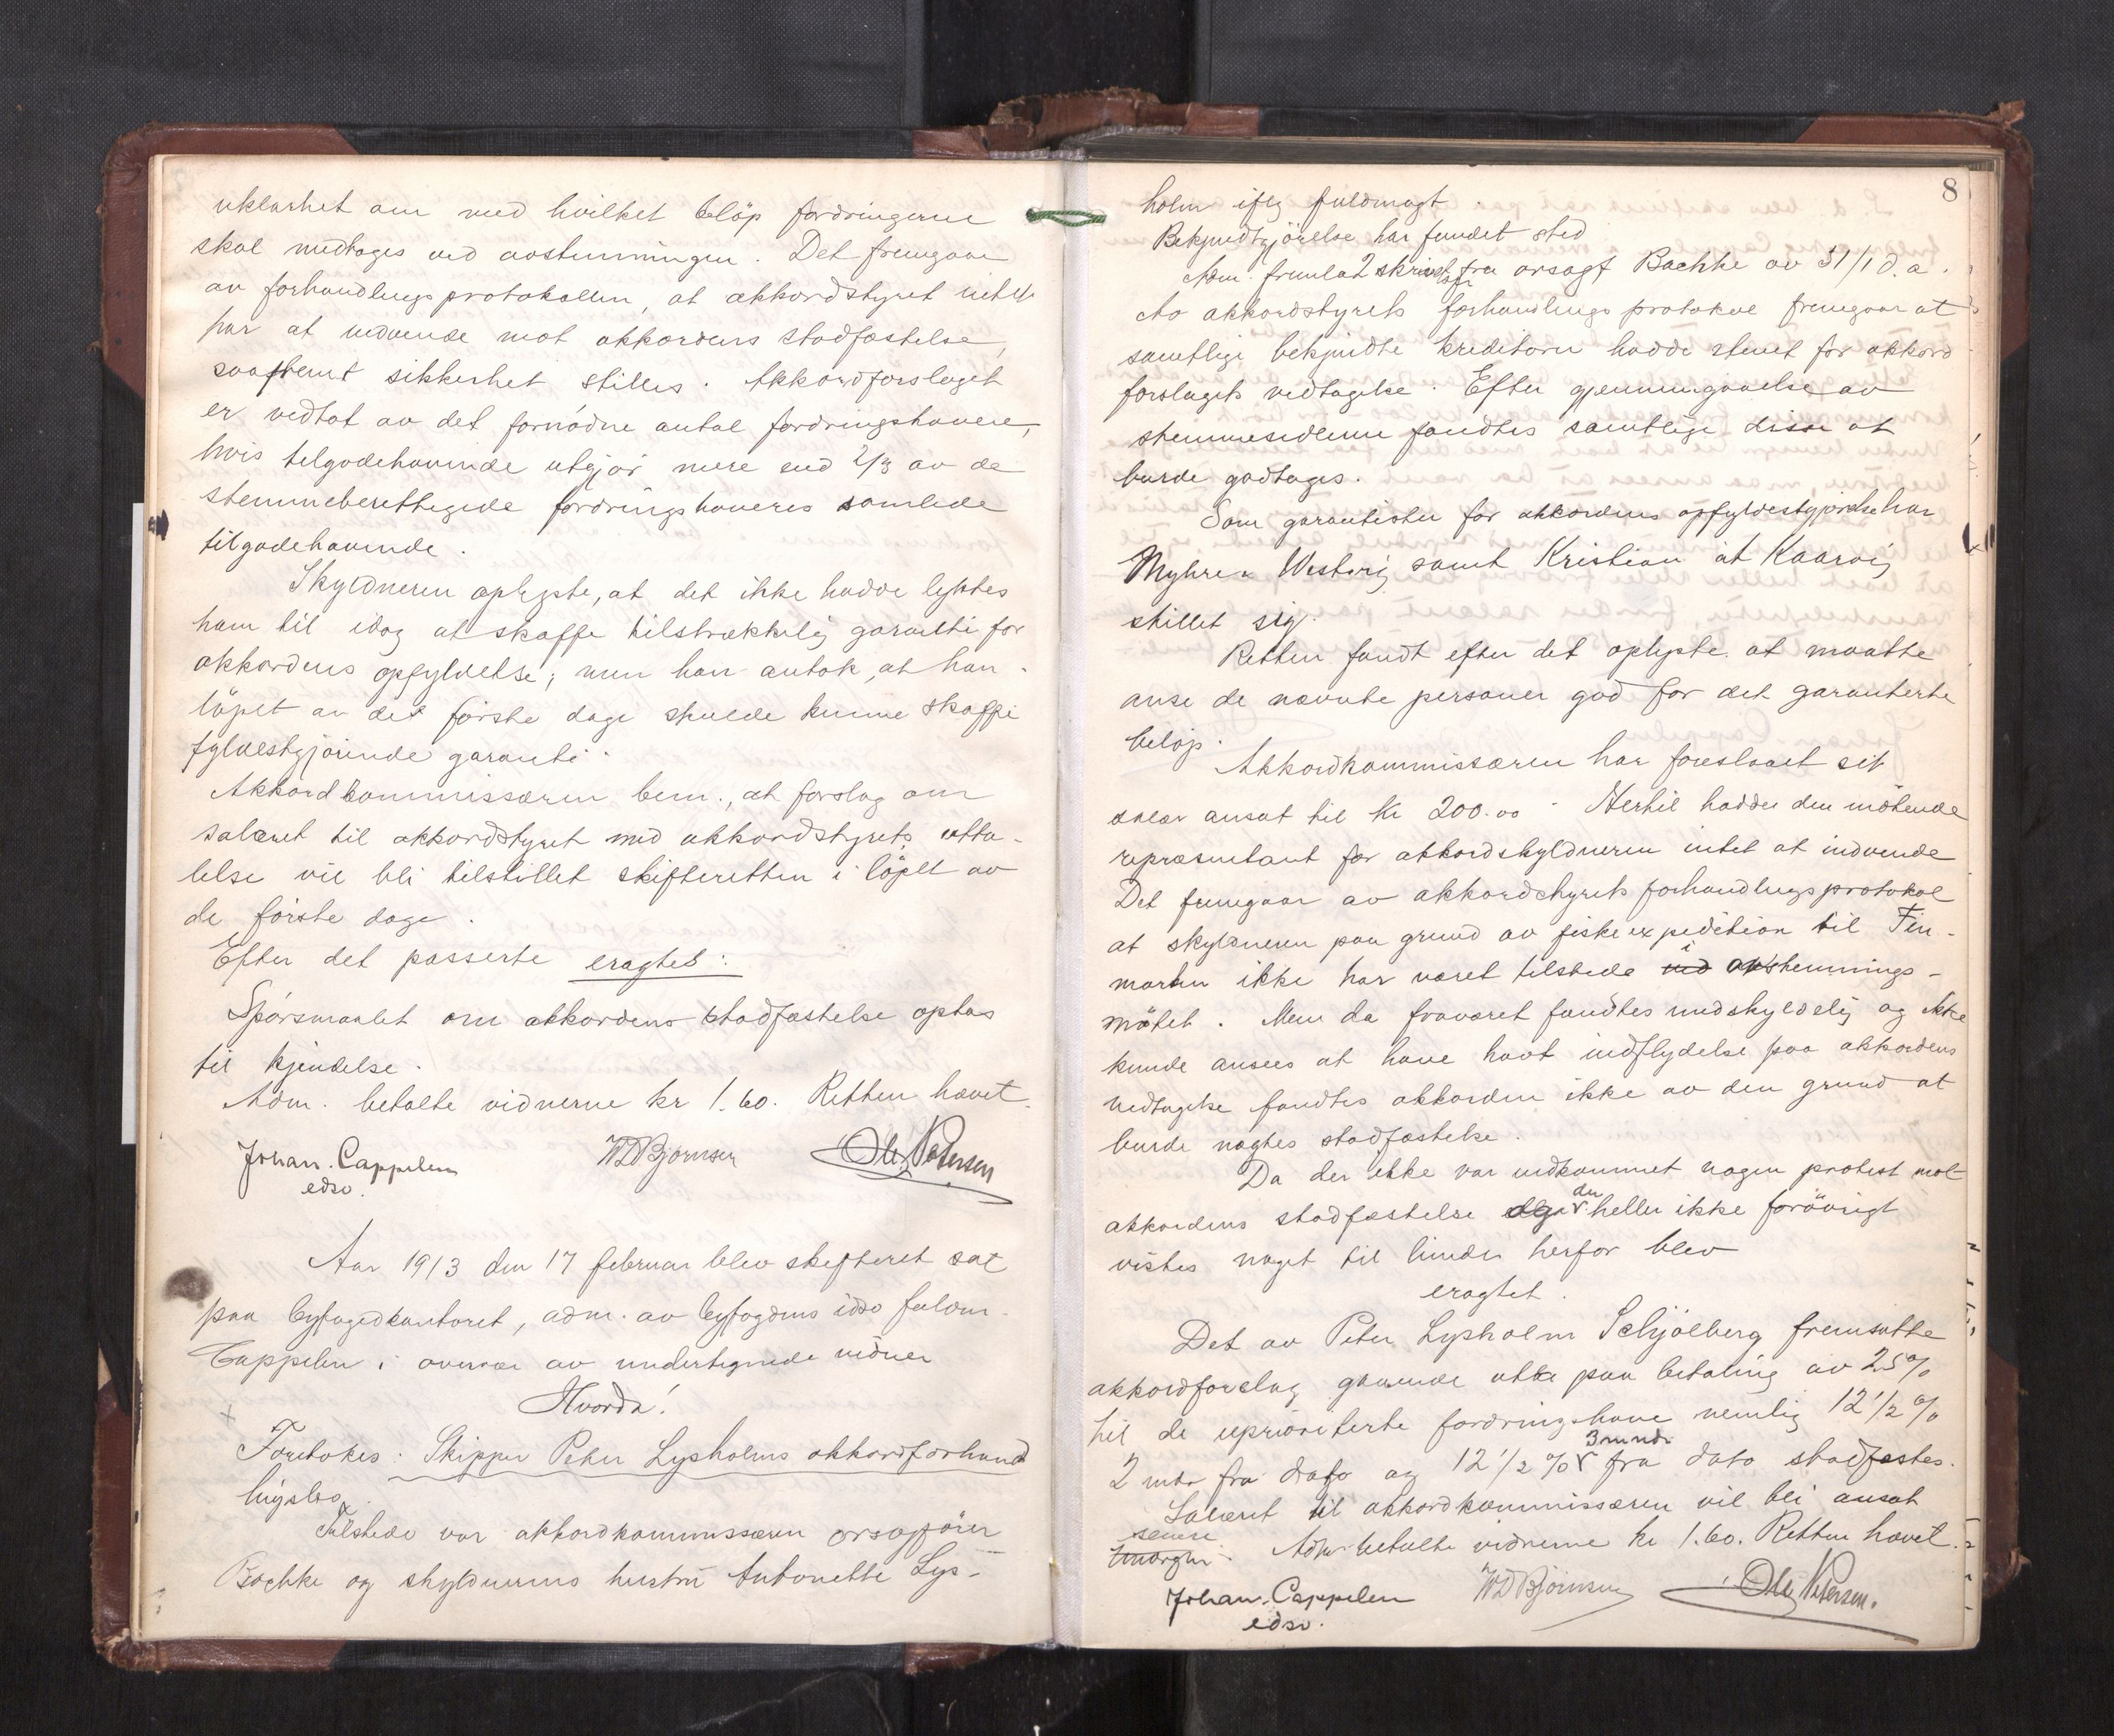 uklarhet om med hvilket beløp fordringerne
skal medtages ved avstemningen. Det fremgaar
av forhandlingsprotokollen, at akkordstyret intet
har at indvende mot akkordens stadfæstelse,
saafremt sikkerhet stilles. Akkordforslaget
er vedtat av det fornödne antal fordringshavere,
hvis tilgodehavende utgjør mere end 2/3 av de
stemmeberettigede fordringshaveres samlede
tilgodehavende.
Skyldneren oplyste, at det ikke hadde lyktes
ham til idag at skaffe tilstrækkelig garanti for
akkordens opfyldelse; men han antok, at han i
löpet av de første dage skulde kunne skaffe
fyldestgjørende garanti.
Akkordkommissæren bem., at forslag om
salæret til akkordstyret med akkordstyrets utta-
lelse vil bli tilstillet skifteretten i löpet av
de første dage.
Efter det passerte eragtet:
Spørsmaalet om akkordens stadfæstelse optas
til kjendelse.
Adm. betalte vidnerne kr 1.60. Retten hævet.
Johan. Cappelen WDBjørnsen Ole Petersen
edsv.
Aar 1913 den 17 februar blev skifteret sat
paa byfogedkontoret, adm. av byfogdens edsv fuldm.
Cappelen i overvær av undertegnede vidner
Hvorda!
Foretokes: Skipper Peter Lysholms akkordforhand
lingsbo.
Tilstede var akkordkommissæren orsagfører
Bachke og skyldnerens hustru Antonette Lys-
8
holm iflg fuldmagt.
Bekjendtgjörelse har fundet sted
Adm. fremla 2 skrivelser fra orsagf Bachke av 31/1 d.a.
Av akkordstyrets forhandlings protokol fremgaar at
samtlige bekjendte kreditorer hadde stemt for akkord
forslagets vedtagelse. Efter gjennemgaaelse av
stemmesedlerne fandtes samtlige disse at
burde godtages.
Som garantister for akkordens opfyldestgjørelse har
Myhre & Westvig samt Kristian at Kaarvig
stillet sig.
Retten fandt efter det oplyste at maatte
anse de nævnte personer god for det garanterte
beløp.
Akkordkommissæren har foreslaaet sit
salær ansat til kr 200.00. Hertil hadde den mötende
repræsentant for akkordskyldneren intet at indvende
Det fremgaar av akkordstyrets forhandlings protokol
at skyldneren paa grund av fiskeexpedition til Fin-
marken ikke har været tilstede ved i avstemnings-
mötet. Men da fraværet fandtes undskyldelig og ikke
kunde ansees at have havt indflydelse paa akkordens
vedtagelse fandtes akkorden ikke av den grund at
burde nægtes stadfæstelse.
Da der ikke var indkommet nogen protest mot
akkordens stadfæstelse der heller ikke forövrigt
vistes noget til hinder herfor blev
eragtet.
Det av Peter Lysholm Schjölberg fremsatte
akkordforslag gaaende ut paa betaling av 25%
til de uprioriterte fordringshave nemlig 12 1/2 %
2 mdr fra dato og 12 1/2 % 3 mndr fra dato stadfæstes.
Salæret til akkordkommissæren vil bli ansat
senere imorgen. Adm betalte vidnerne kr 1.60. Retten hævet.
Johan. Cappelen WDBjørnsen Ole Petersen.
edsv.